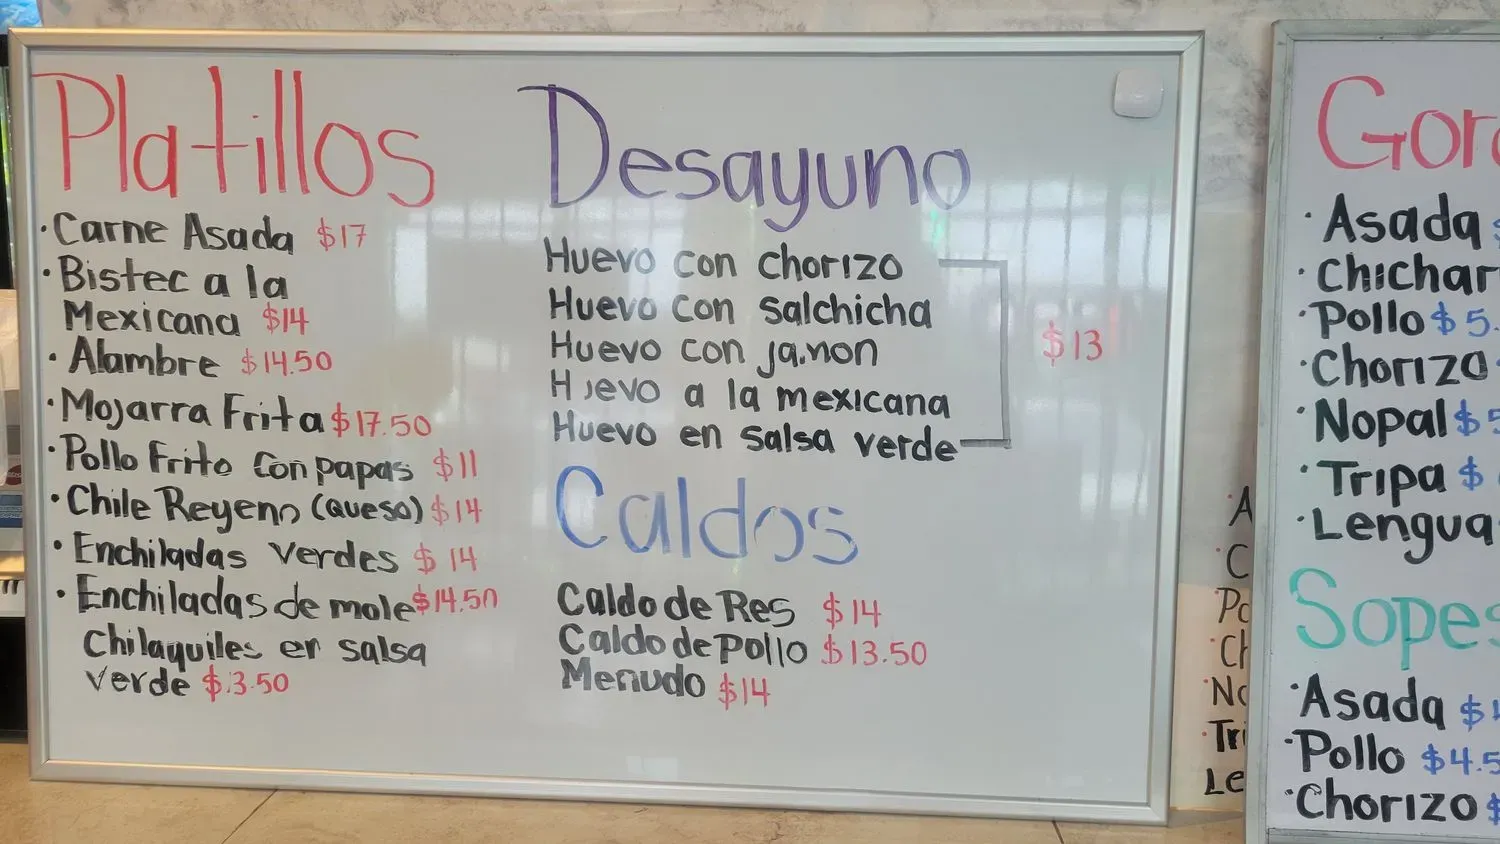 Platillos
· Carne Asada $17
· Bistec a la
Mexicana $14
· Alambre $14.50
· Mojarra Frita $17.50
· Pollo Frito Con papas $11
· Chile Reyeno (queso) $14
· Enchiladas verdes $14
· Enchiladas de mole $14.50
Chilaquiles en salsa
verde $13.50
Desayuno
Huevo con chorizo
Huevo con salchicha
Huevo con jamon
Huevo a la mexicana
Huevo en salsa verde
$13
Caldos
Caldo de Res $14
Caldo de pollo $13.50
Menudo $14
Gor
· Asada $
· Chichar
· Pollo $5.
· Chorizo
· Nopal $5
· Tripa $
· Lengua
Sopes
· Asada $4
· Pollo $4.5
· Chorizo $